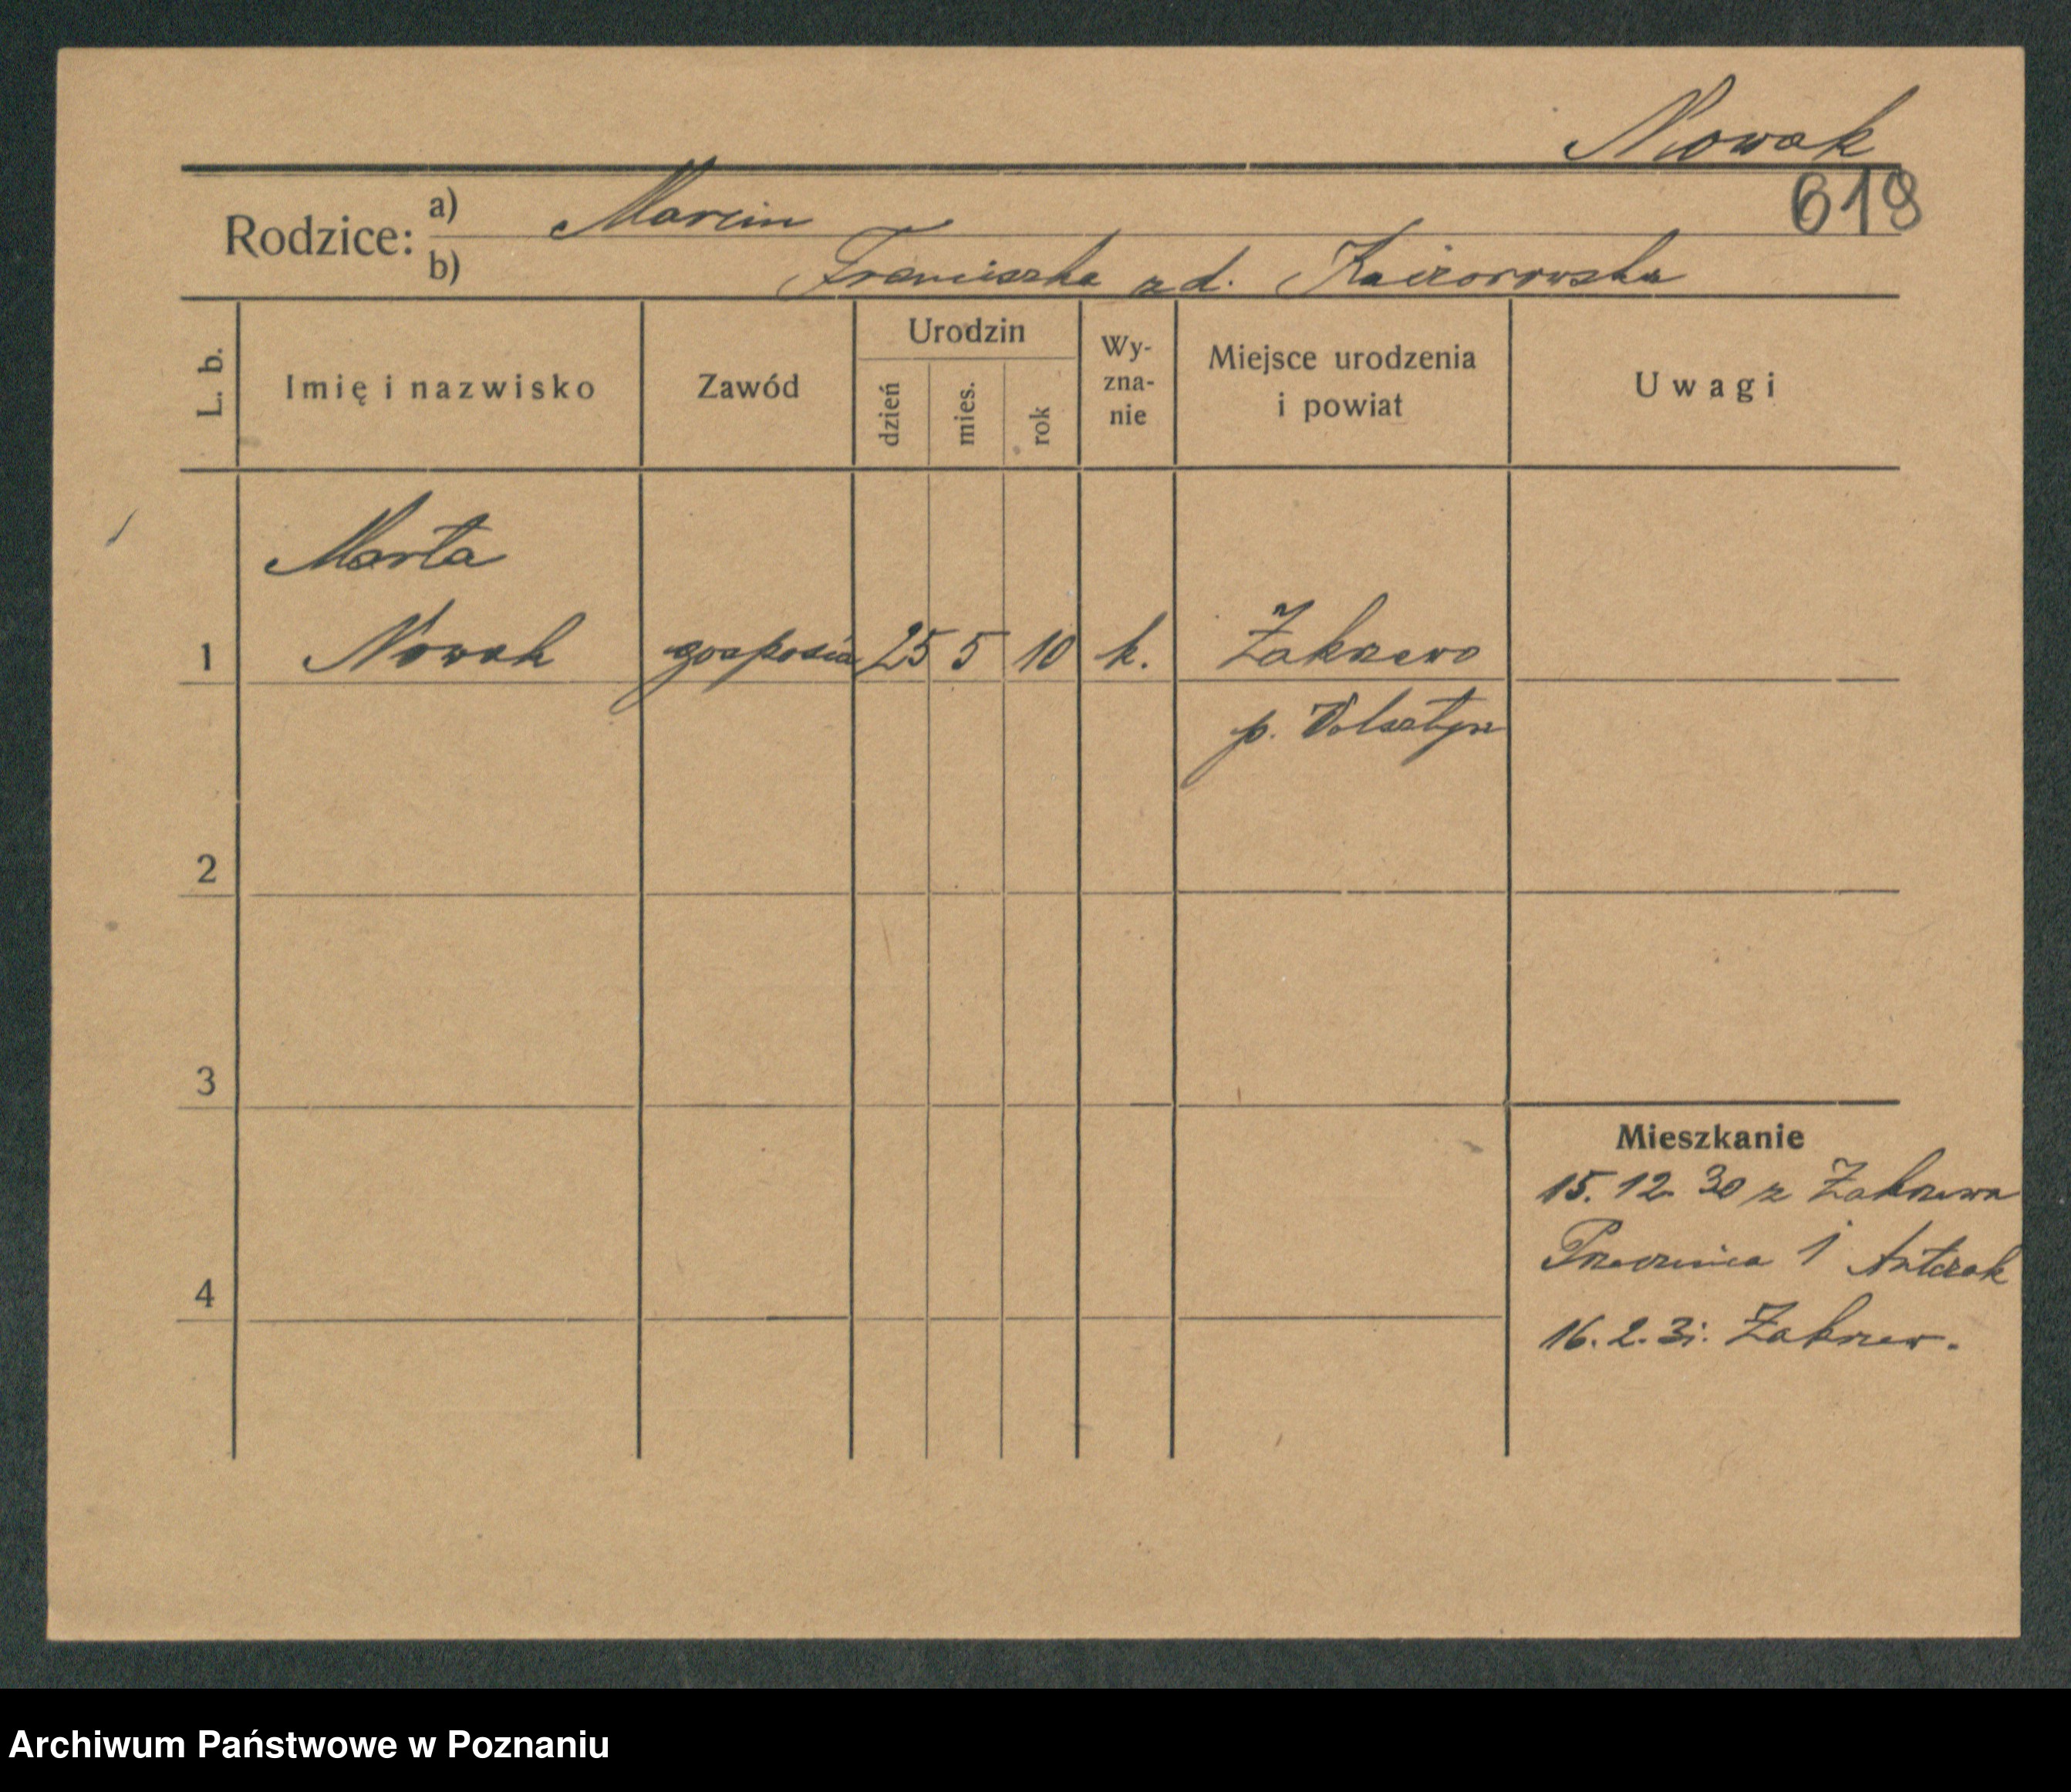 Nowak
618
Rodzice:
a) Marcin
b) Franciszka z d. Kaczorowska
L. b.
Imię i nazwisko
Zawód
Urodzin
dzień
mies.
rok
Wy-
zna-
nie
Miejsce urodzenia
i powiat
Uwagi
Marta
1 Nowak gosposia 25 5 10 k. Zakrzewo
p. Wolsztyn
2
3
Mieszkanie
15. 12. 30 z Zakrzewa
1 Antczak
4
16. 2. 31. Zakrzew.
Archiwum Państwowe w Poznaniu